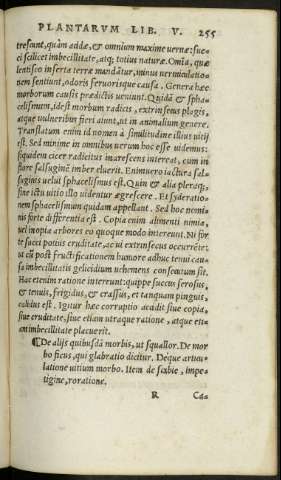 PLANTARVM LIB. V. 255
tresunt, quàm addæ, & omnium maxime uernæ: suc-
ci scilicet imbecillitate, atq; totius naturæ. Omĩa, quæ
lentisco inserta terræ mandãtur, minus uermiculatio-
nem sentiunt, odoris seruorisque causa. Genera hæc
morborum causis prædictis ueniunt. Quidã & spha-
celismum, idest morbum radicis, extrinseus plagis,
atque uulneribus fieri aiunt, ut in animalium genere.
Translatum enim id nomen à similitudine illius uitij
est. Sed minime in omnibus uerum hoc esse uidemus:
siquidem cicer radicitus inarescens intereat, cum in
flore salsuginē imber eluerit. Enimuero iactura sal-
suginis uelut sphacelismus est. Quin & alia pleraq;,
sine ictu uitio illo uidentur ægrescere. Et syderatio-
nem sphacelismum quidam appellant. Sed hoc nomi-
nis forte differentia est. Copia enim alimenti nimia,
uel inopia arbores eo quoque modo intereunt. Ni for
te succi potius cruditate, ac ui extrinsecus occurrēte:
ut cũ post fructificationem humore adhuc tenui cau-
sa imbecillitatis gelicidium uehemens consecutum sit.
Hac etenim ratione intereunt: quippe succus serosus,
& tenuis, frigidus, & crassus, et tanquam pinguis,
calidus est. Igitur hæc corruptio acadit siue copia,
siue cruditate, siue etiam utraque ratione, atque eti-
am imbecillitate placuerit.
¶ De alijs quibusdã morbis, ut squallor. De mor
bo ficus, qui glabratio dicitur. Deque articu-
latione uitium morbo. Item de scabie, impe-
tigine, roratione.
R Ca-